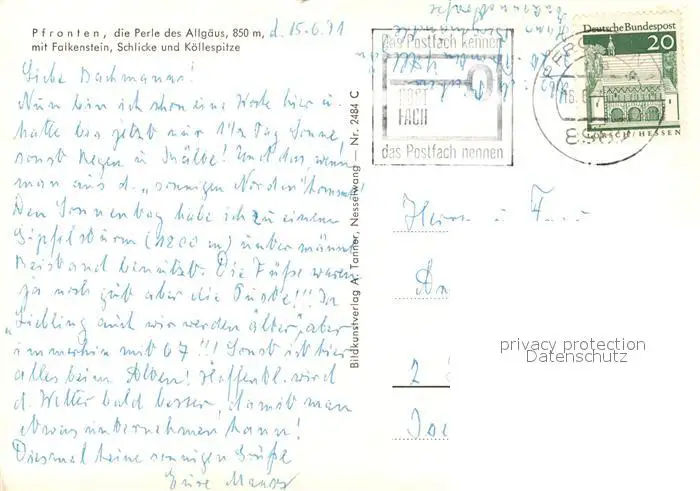 Pfronten, die Perle des Allgäus, 850 m,
mit Falkenstein, Schlicke und Köllespitze
d. 15.6.71
Liebe Bachmanns!
Nun bin ich schon eine Woche hier u.
hatte bis jetzt nur 1½ Tag Sonne,
sonst Regen u. Kälte! Und das, wenn
man aus d. „sonnigen Norden" kommt!
Den Sonnentag habe ich zu einem
Gipfelsturm (1200 m) unter männl.
Beistand benützt. Die Füße waren
ja noch gut aber die Puste!!! Ja
„Liebling auch wir werden älter", aber
immerhin mit 67!!! Sonst ist hier
alles beim Alten! Hoffentl. wird
d. Wetter bald besser, damit man
etwas unternehmen kann!
Diesmal keine sonnigen Grüße
Eure
Bildkunstverlag A. Tanner, Nesselwang — Nr. 2484 C
das Postfach kennen
POST
FACH
das Postfach nennen
Deutsche Bundespost
20
LORSCH/HESSEN
Herrn u. Frau
2
privacy protection
Datenschutz